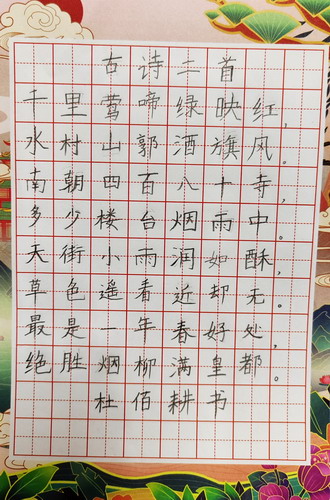 古诗二首
千里莺啼绿映红，
水村山郭酒旗风。
南朝四百八十寺，
多少楼台烟雨中。
天街小雨润如酥，
草色遥看近却无。
最是一年春好处，
绝胜烟柳满皇都。
杜佰耕书